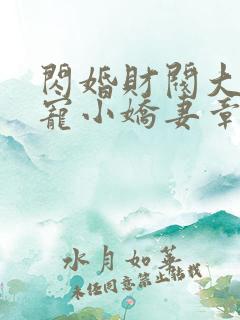 閃婚財閥大
寵小嬌妻章
水月如華
未經同意禁止轉載